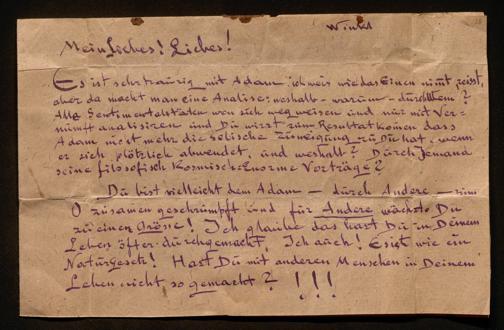 Winkl
Mein Liebes! Liebes!
Es ist sehr traurig mit Adam, ich weis wie das Einen nimt,
aber da macht man eine Analise: weshalb – warum – durch Wem?
Alle Sentimentalitäten von sich weg weisen und nur mit Ver-
numft analisiren und Du wirst zum Resultat komen dass
Adam nicht mehr die selische Zuneigung zu Du hat, wenn
er sich plötzlich abwendet, und weshalb? Durch Jemand
seine filosofisch kosmisch-Enorme Vorträge?
Du bist vielleicht dem Adam – durch Andere – zum
O zusamengeschrumpft und für Andere wächst Du
zu einer Grösse! Ich glaube das hast Du in Deinem
Leben öfter durchgemacht, Ich auch! Es ist wie ein
Naturgesetz! Hast Du mit anderen Menschen in Deinem
Leben nicht so gemacht? !!!